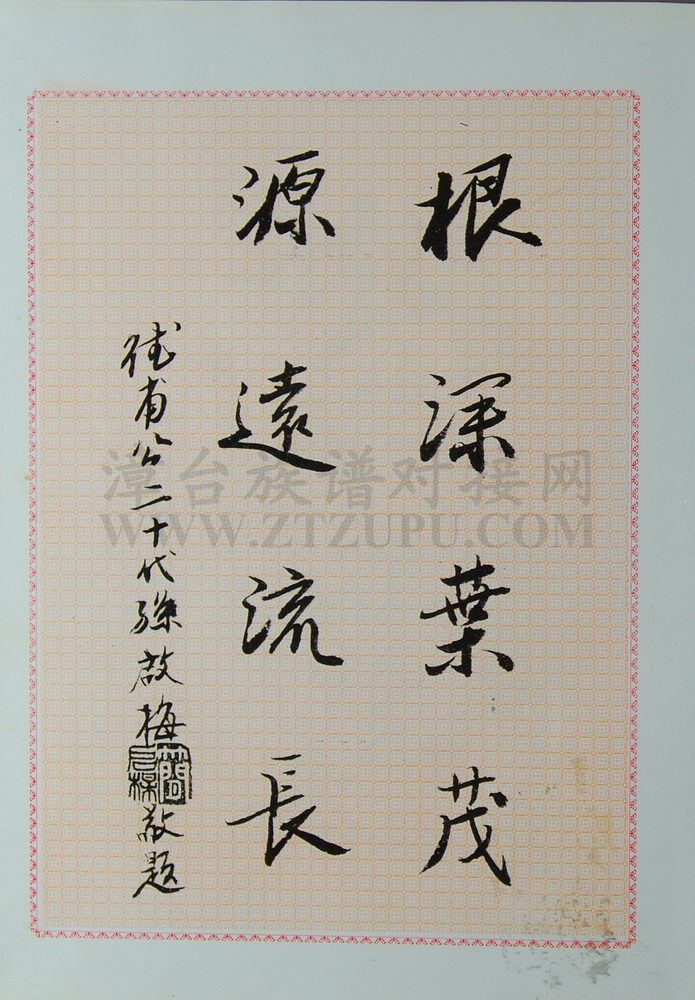 根深葉茂
源遠流長
德甫公二十代孫啟梅敬題
簡啟梅
漳台族谱对接网
WWW.ZTZUPU.COM